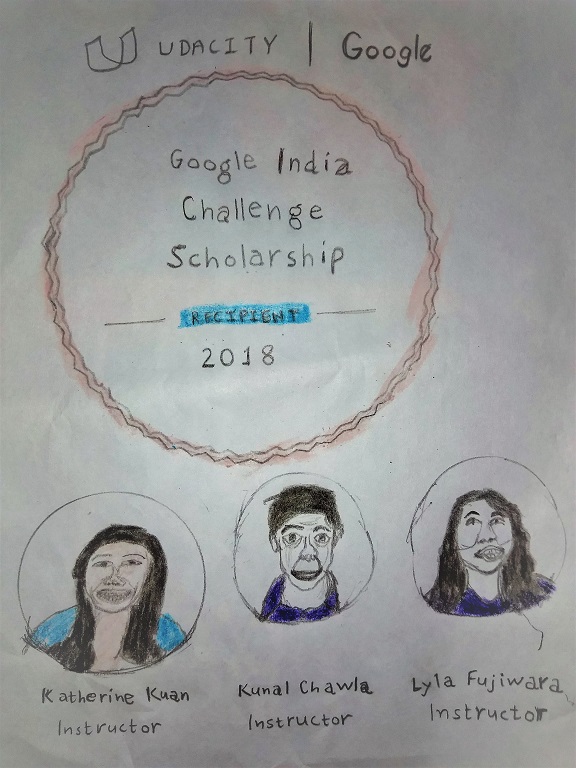 UDACITY | Google
Google India
Challenge
Scholarship
RECIPIENT
2018
Katherine Kuan
Instructor
Kunal Chawla
Instructor
Lyla Fujiwara
Instructor